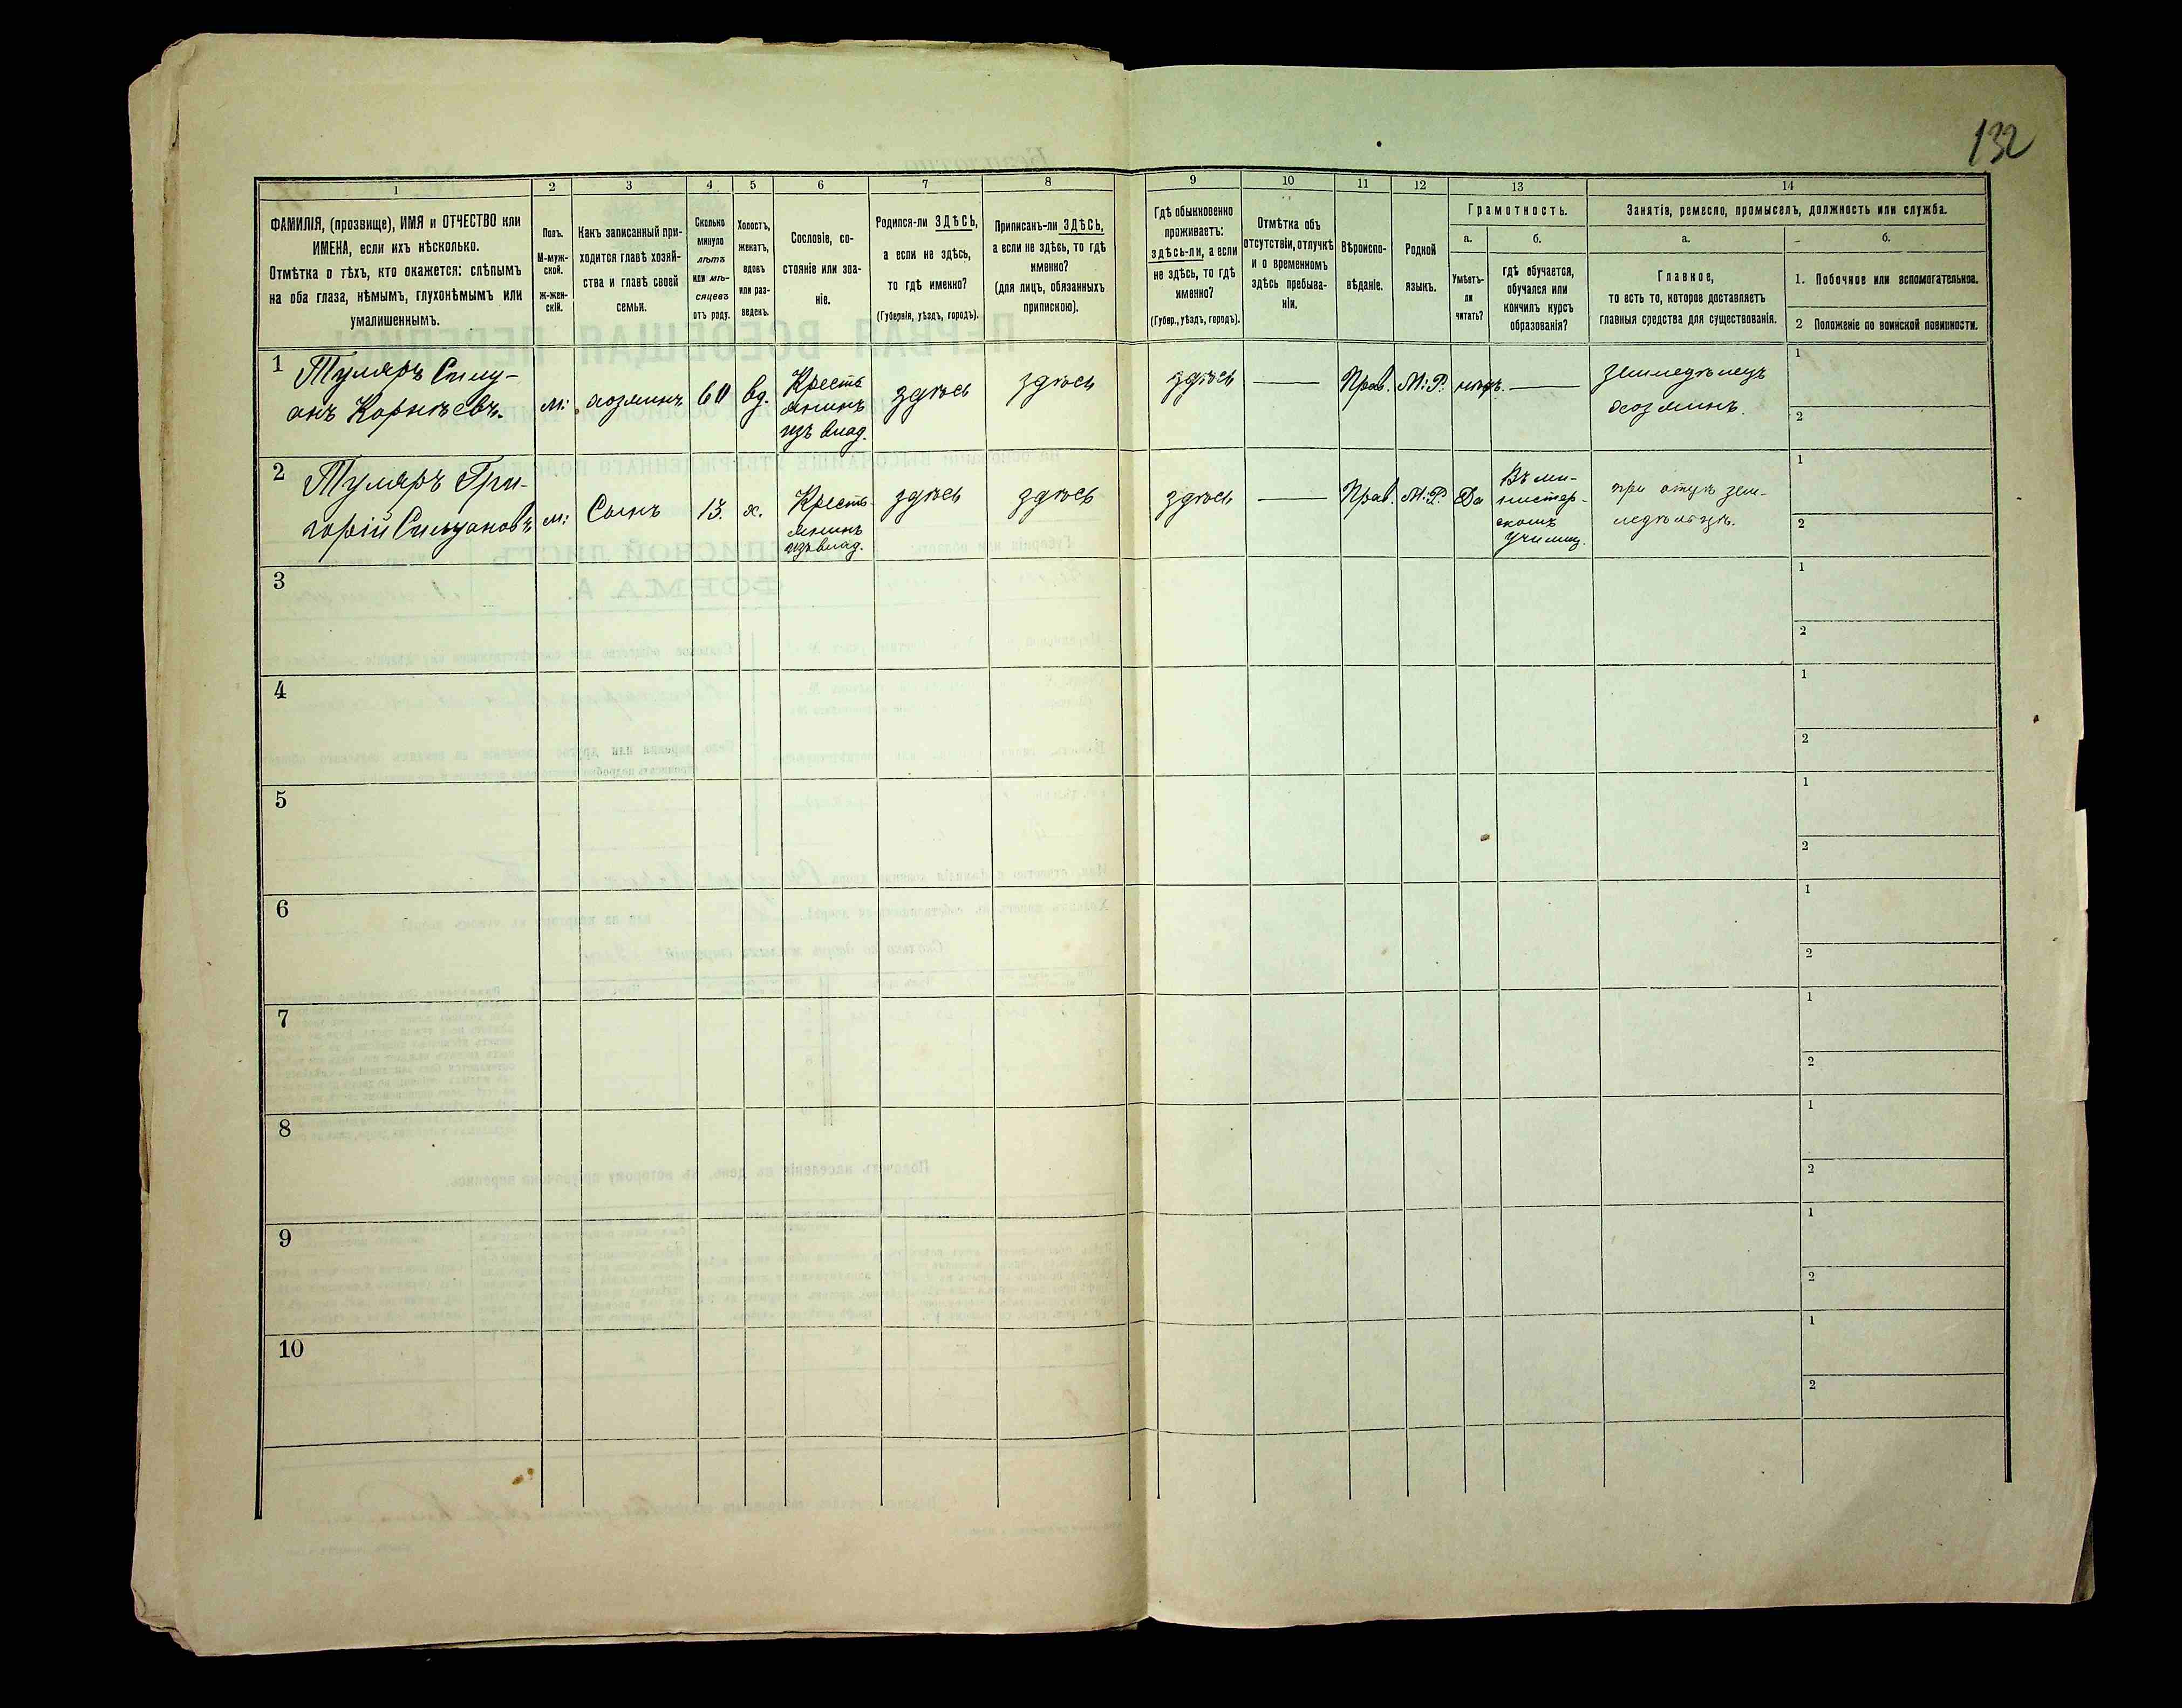 132
1
2
3
4
5
6
7
8
9
10
11
12
13
14
ФАМИЛІЯ, (прозвище), ИМЯ и ОТЧЕСТВО или
ИМЕНА, если ихъ нѣсколько.
Отмѣтка о тѣхъ, кто окажется: слѣпымъ
на оба глаза, нѣмымъ, глухонѣмымъ или
умалишеннымъ.
Полъ.
М-муж-
ской.
Ж-жен-
скій.
Какъ записанный при-
ходится главѣ хозяй-
ства и главѣ своей
семьи.
Сколько
минуло
лѣтъ
или мѣ-
сяцевъ
отъ роду.
Холостъ,
женатъ,
вдовъ
или раз-
веденъ.
Сословіе, со-
стояніе или зва-
ніе.
Родился-ли ЗДѢСЬ,
а если не здѣсь,
то гдѣ именно?
(Губернія, уѣздъ, городъ).
Приписанъ-ли ЗДѢСЬ,
а если не здѣсь, то гдѣ
именно?
(для лицъ, обязанныхъ
припискою).
Гдѣ обыкновенно
проживаетъ:
здѣсь-ли, а если
не здѣсь, то гдѣ
именно?
(Губер., уѣздъ, городъ).
Отмѣтка объ
отсутствіи, отлучкѣ
и о временномъ
здѣсь пребыва-
ніи.
Вѣроиспо-
вѣданіе.
Родной
языкъ.
Грамотность.
а.
Умѣетъ-
ли
читать?
б.
гдѣ обучается,
обучался или
кончилъ курсъ
образованія?
Занятія, ремесло, промыселъ, должность или служба.
а.
Главное,
то есть то, которое доставляетъ
главныя средства для существованія.
б.
1. Побочное или вспомогательное.
2 Положеніе по воинской повинности.
1
Туляръ Силу-
анъ Корнѣевъ.
м:
хозяинъ
60
вд.
Кресть
янинъ
изъ влад.
здѣсь
здѣсь
здѣсь
Прав.
М:Р.
нѣтъ.
земледѣлецъ
хозяинъ.
1
2
2
Туляръ Гри-
горій Силуановъ
м:
Сынъ
13.
х.
Кресть-
янинъ
изъ влад.
здѣсь
здѣсь
здѣсь
Прав.
М:Р.
Да
Въ ми-
нистер-
скомъ
училищ.
при отцѣ зем-
ледѣльцѣ.
1
2
3
1
2
4
1
2
5
1
2
6
1
2
7
1
2
8
1
2
9
1
2
10
1
2